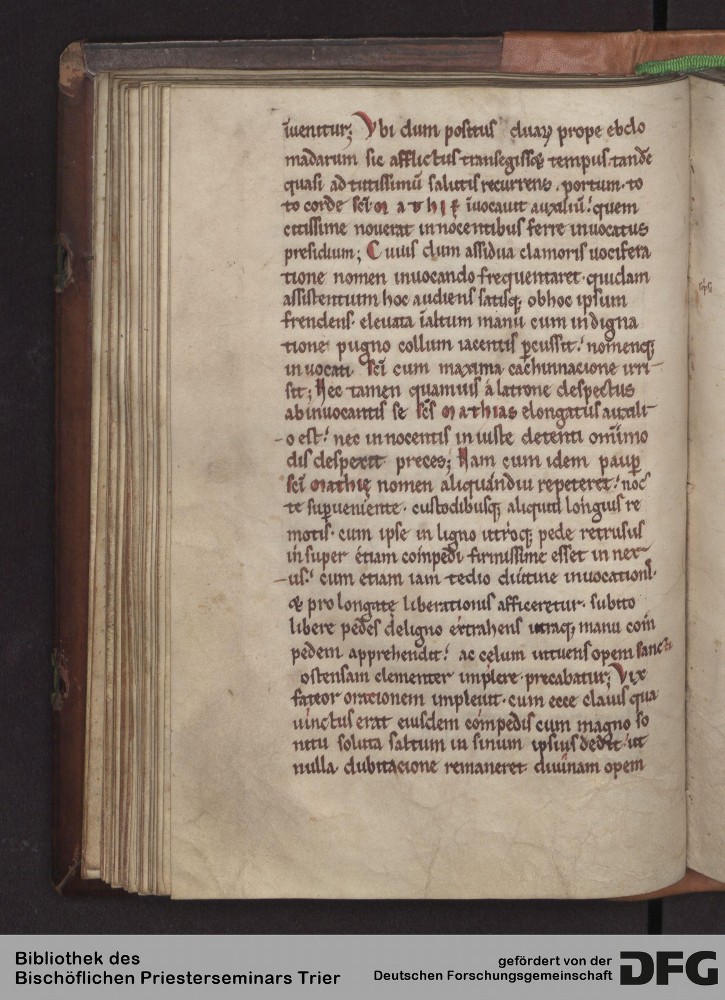 īuenitur; Vbi dum positus duaꝝ prope ebdo
madarum sic afflictus transegissꝫ tempus. tandē
quasi ad tutissimū salutis recurrens. portum. to
to corde sc̄i MATHIE īuocauit auxiliū. quem
citissime nouerat innocentibus ferre inuocatus
presidium; Cuius dum assidua clamoris uocifera
tione nomen inuocando frequentaret. quidam
assistentium hoc audiens satisqꝫ ob hoc ipsum
frendens. eleuata ī altum manu cum indigna
tione pugno collum iacentis ꝑcussit. nomenqꝫ
inuocati sc̄i cum maxima cachinnacione irri
sit; Hec tamen quamuis a latrone despectus
ab inuocantis se sc̄s Mathias elongatus auxili
o est. nec innocentis iniuste detenti omīmo
dis despexit preces; Nam cum idem paup̄
sc̄i Mathię nomen aliquandiu repeteret. noc
te suꝑueniente. custodibusqꝫ aliquid longius re
motis. cum ipse in ligno utroqꝫ pede retrusus
insuper etiam compedi firmissime esset innex
us. cum etiam iam tedio diutine inuocationis.
& prolongate liberationis afficeretur. subito
libere pedes de ligno extrahens utraqꝫ manu com
pedem apprehendit. ac cęlum intuens opem sancti
ostensam clementer implere precabatur; Vix
fateor orationem impleuit. cum ecce clauis qua
uinctus erat eiusdem compedis cum magno so
nitu soluta saltum in sinum ipsius dedit. ut
nulla dubitacione remaneret diuinam opem
Bibliothek des
Bischöflichen Priesterseminars Trier
gefördert von der
Deutschen Forschungsgemeinschaft
DFG